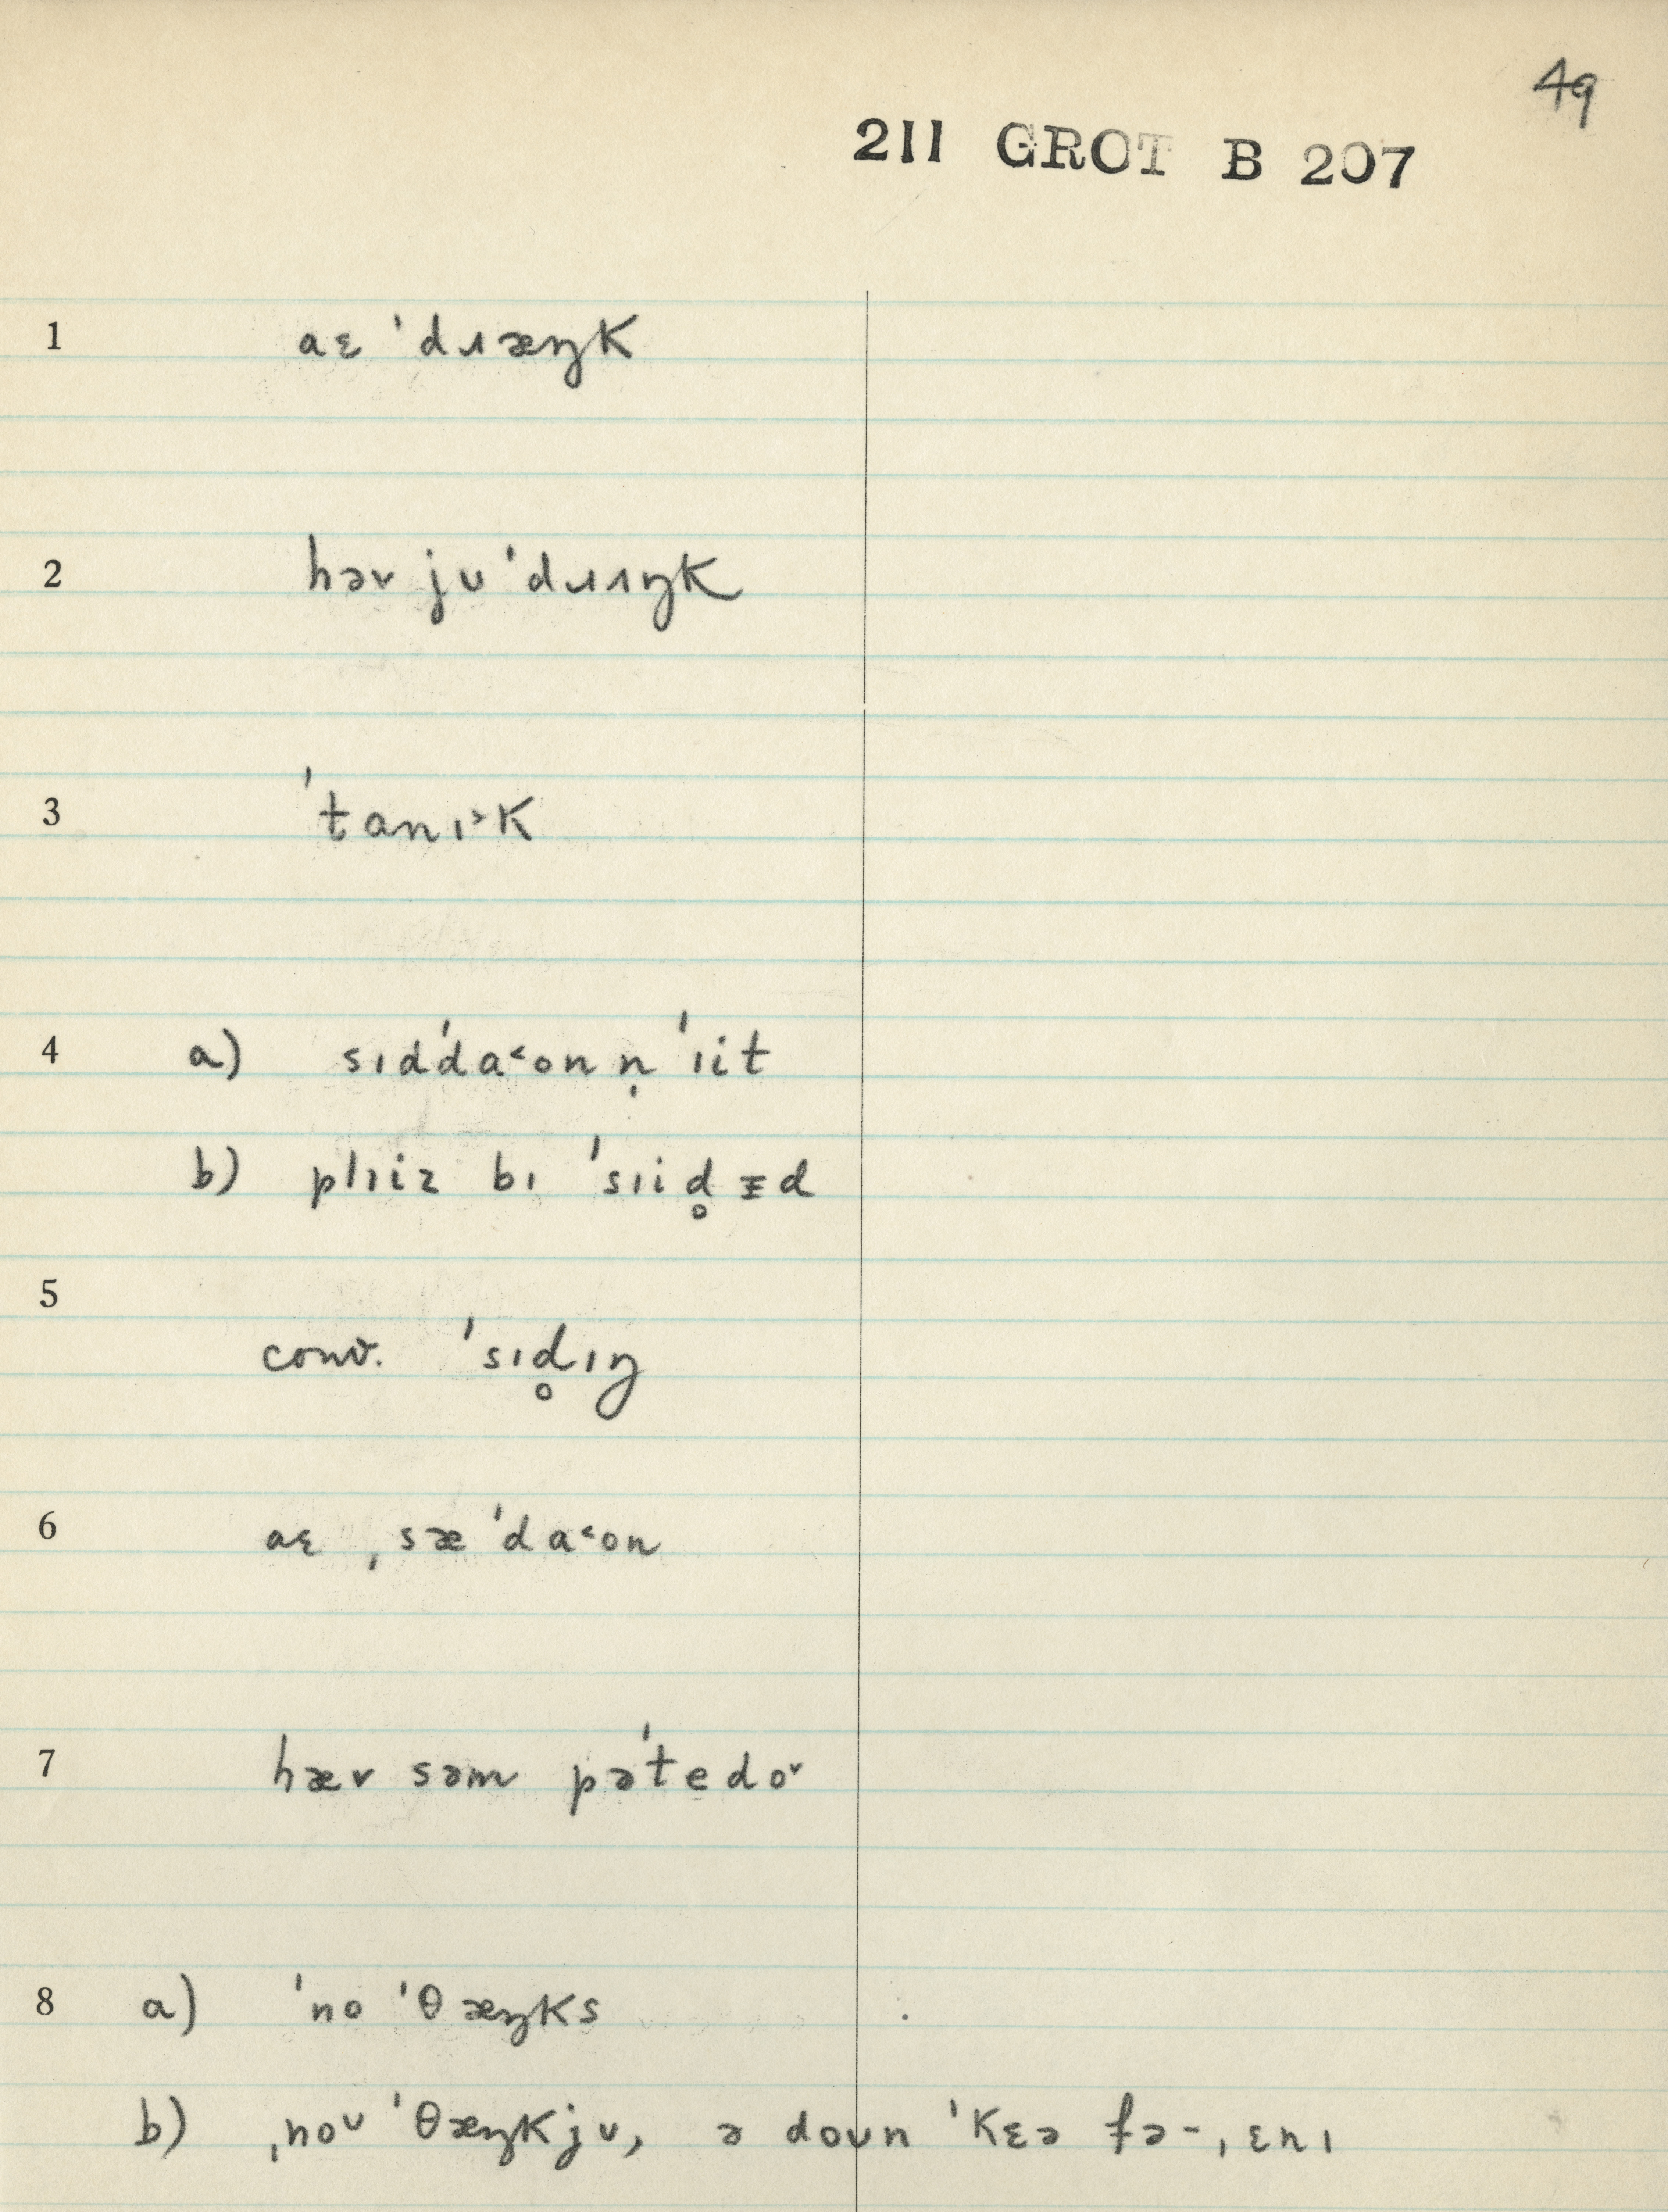 49
211 GROT B 207
1 aɛ ˈdɹæŋk
2 həv jʊ ˈdɹɪŋk
3 ˈtanɪ˃k
4 a) sɪdˈda˂on n̩ ˈɪit
b) plɪiz bɪ ˈsɪid̥ ᵻd
5
conv. ˈsɪd̥ɪŋ
6 aɛ ˌsæ ˈda˂on
7 hæv səm pəˈtedoᵛ
8 a) ˈno ˈθæŋks
b) ˌnoᶸ ˈθæŋkjʊ, ə doʊn ˈkɛə fə-ˌɛnɪ